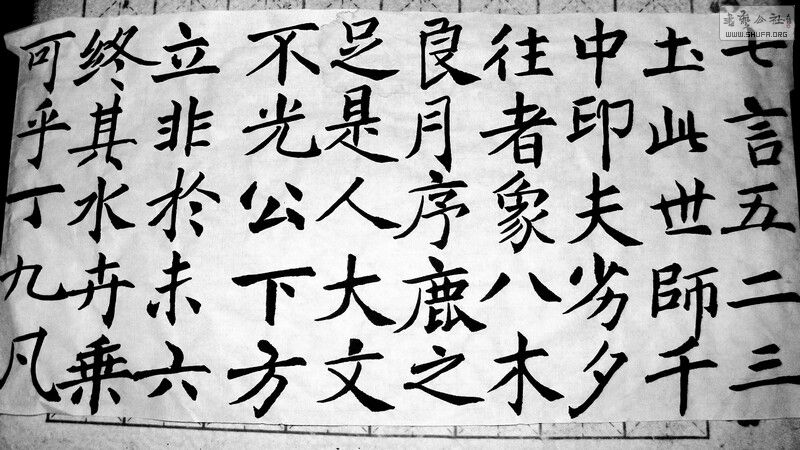 七言五二三
土此世師千
中印夫劣夕
往者象八木
良月序鹿之
足是人大文
不光公下方
立非於未六
終其水卉乗
可乎丁九凡
WWW.SHUFA.ORG